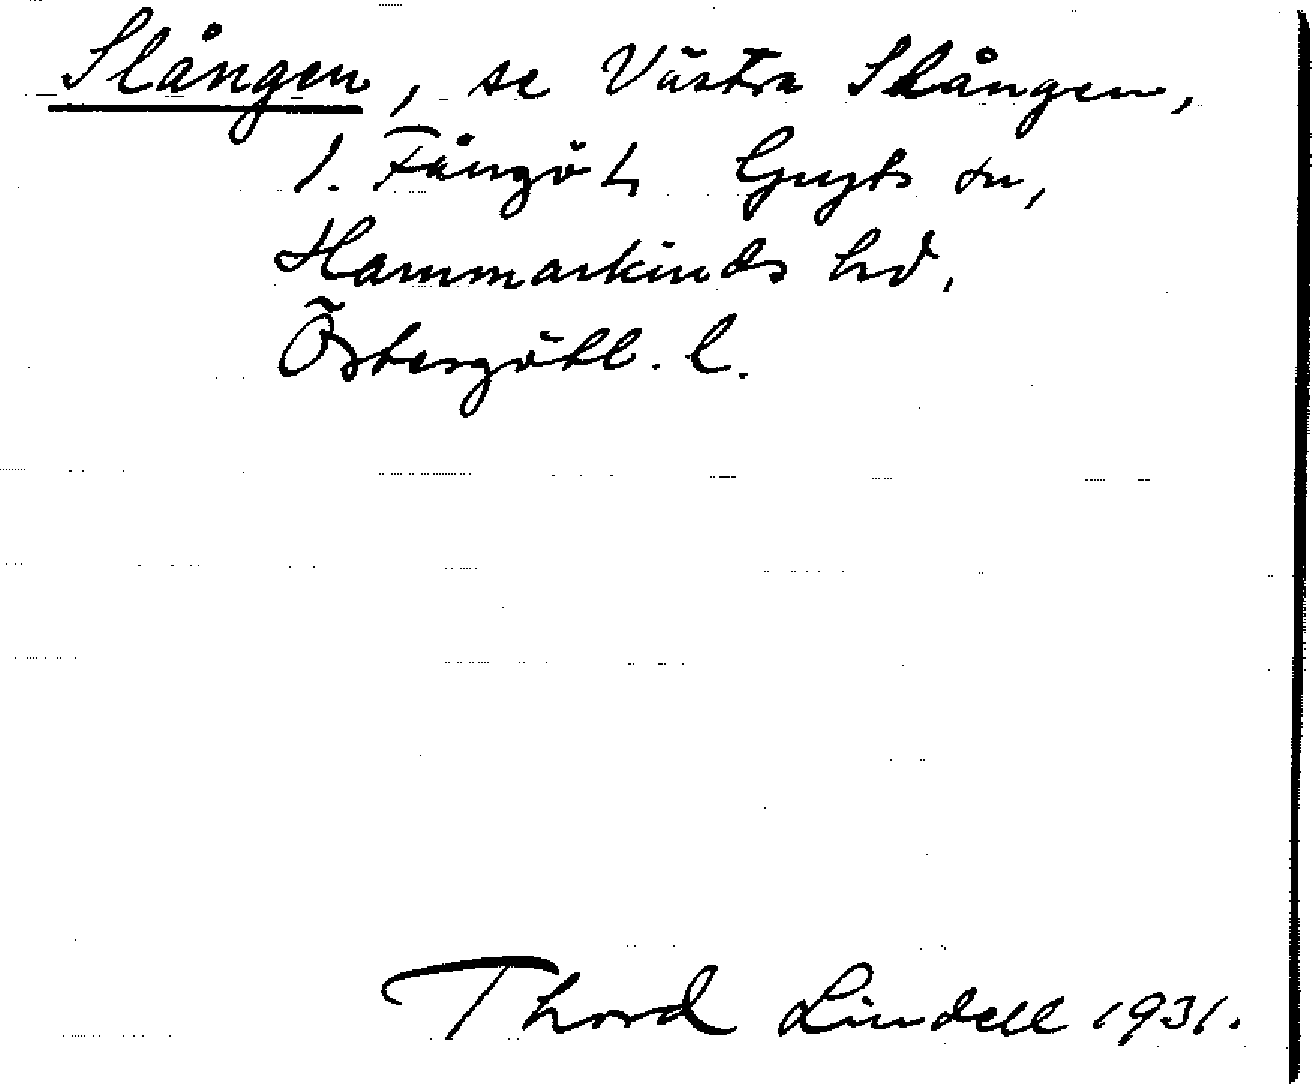 Slången, se Västra Slången,
1. Fångö t, Gryts sn,
Hammarkinds hd.
Östergötl. l.
Thord Lindell 1931.